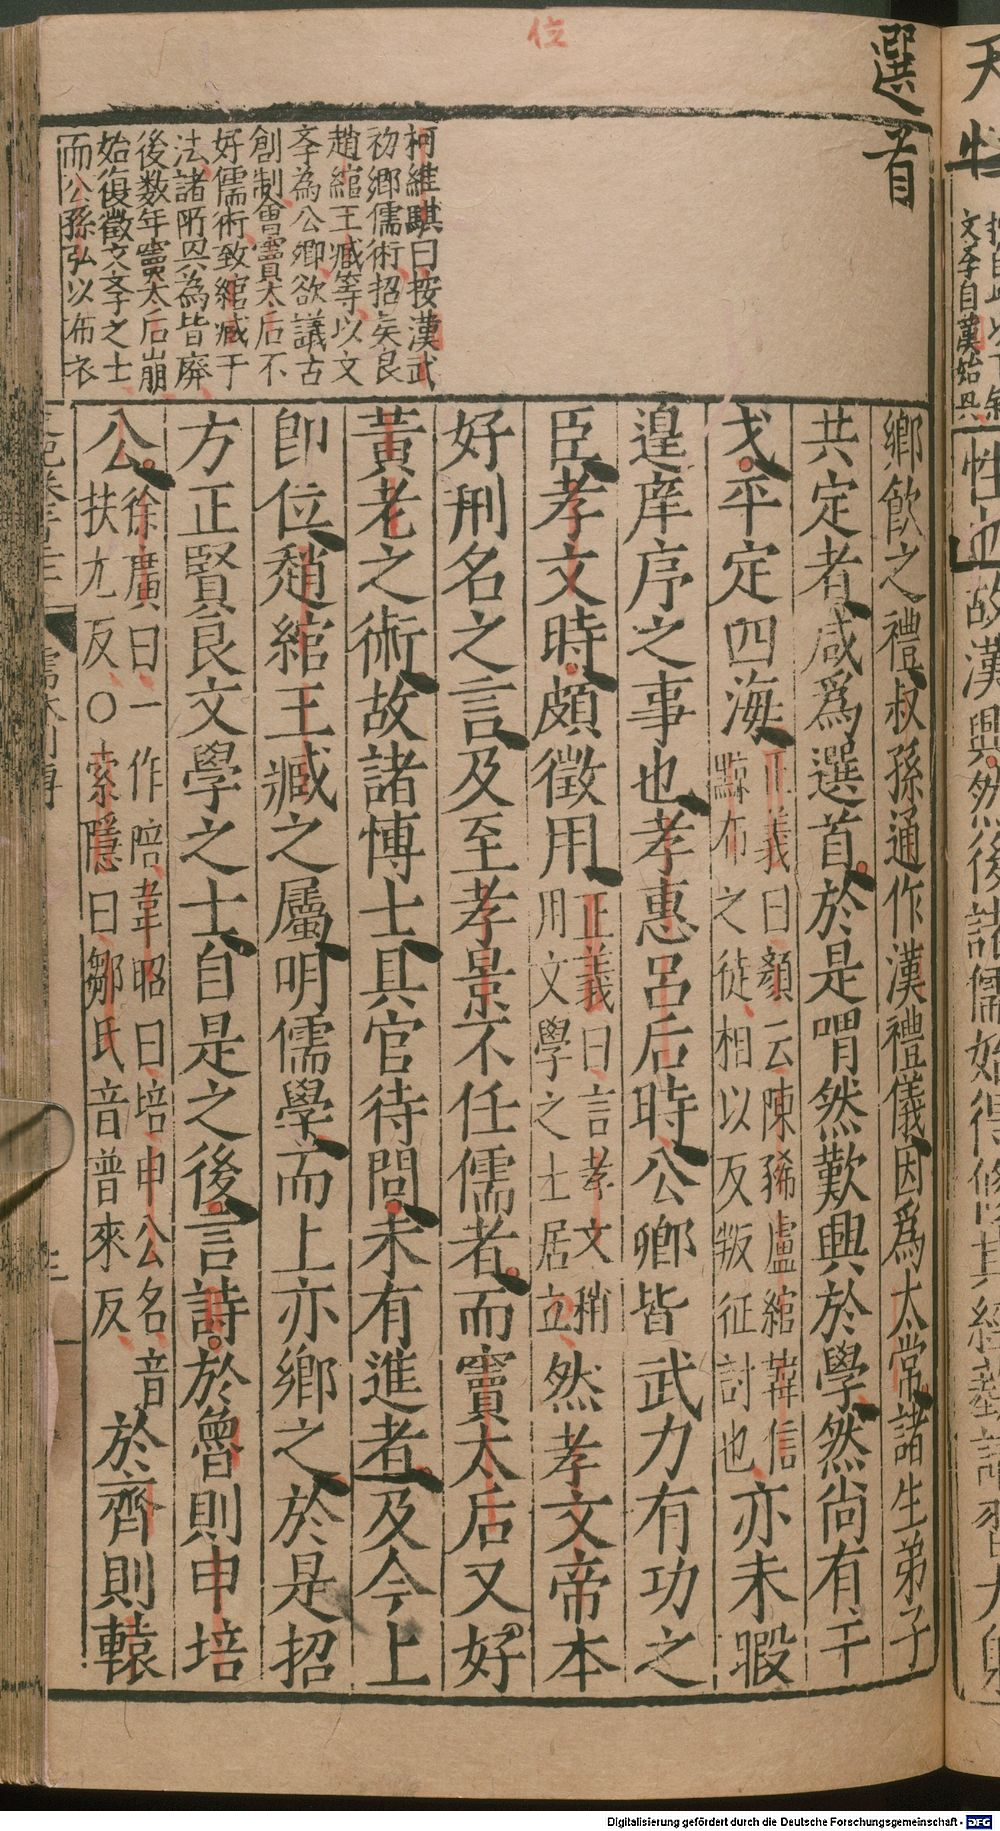 位
選首
柯維騏曰按漢武
初鄉儒術招㠯良
趙綰王臧等以文
孝為公卿欲議古
創制會竇太后不
好儒術致綰臧于
法諸所㒷為皆廢
後数年竇太后崩
始復徵文孝之士
而公孫弘以布衣
鄉飲之禮叔孫通作漢禮儀因爲太常諸生弟子
共定者咸爲選首於是喟然歎興於學然尚有干
戈平定四海
正義曰顏云陳豨盧綰韓信
黥布之徒相以反叛征討也
亦未暇
遑庠序之事也孝惠呂后時公卿皆武力有功之
臣孝文時頗徵用
正義曰言孝文稍
用文學之士居位
然孝文帝本
好刑名之言及至孝景不任儒者而竇太后又好
黃老之術故諸博士具官待問未有進者及今上
卽位趙綰王臧之屬明儒學而上亦鄉之於是招
方正賢良文學之士自是之後言詩於魯則申培
公
徐廣曰一作陪韋昭曰培申公名音
扶尤反〇索隱曰鄒氏音普來反
於齊則轅
故漢興然後諸儒始得修其經藝講習大射
Digitalisierung gefördert durch die Deutsche Forschungsgemeinschaft - DFG